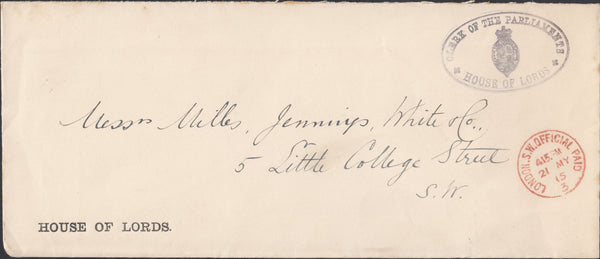 CLERK OF THE PARLIAMENTS
HOUSE OF LORDS
Messrs Milles, Jennings, White & Co.,
5 Little College Street
S.W.
LONDON.S.W.OFFICIAL PAID
415 PM
21 MY
15
3
HOUSE OF LORDS.